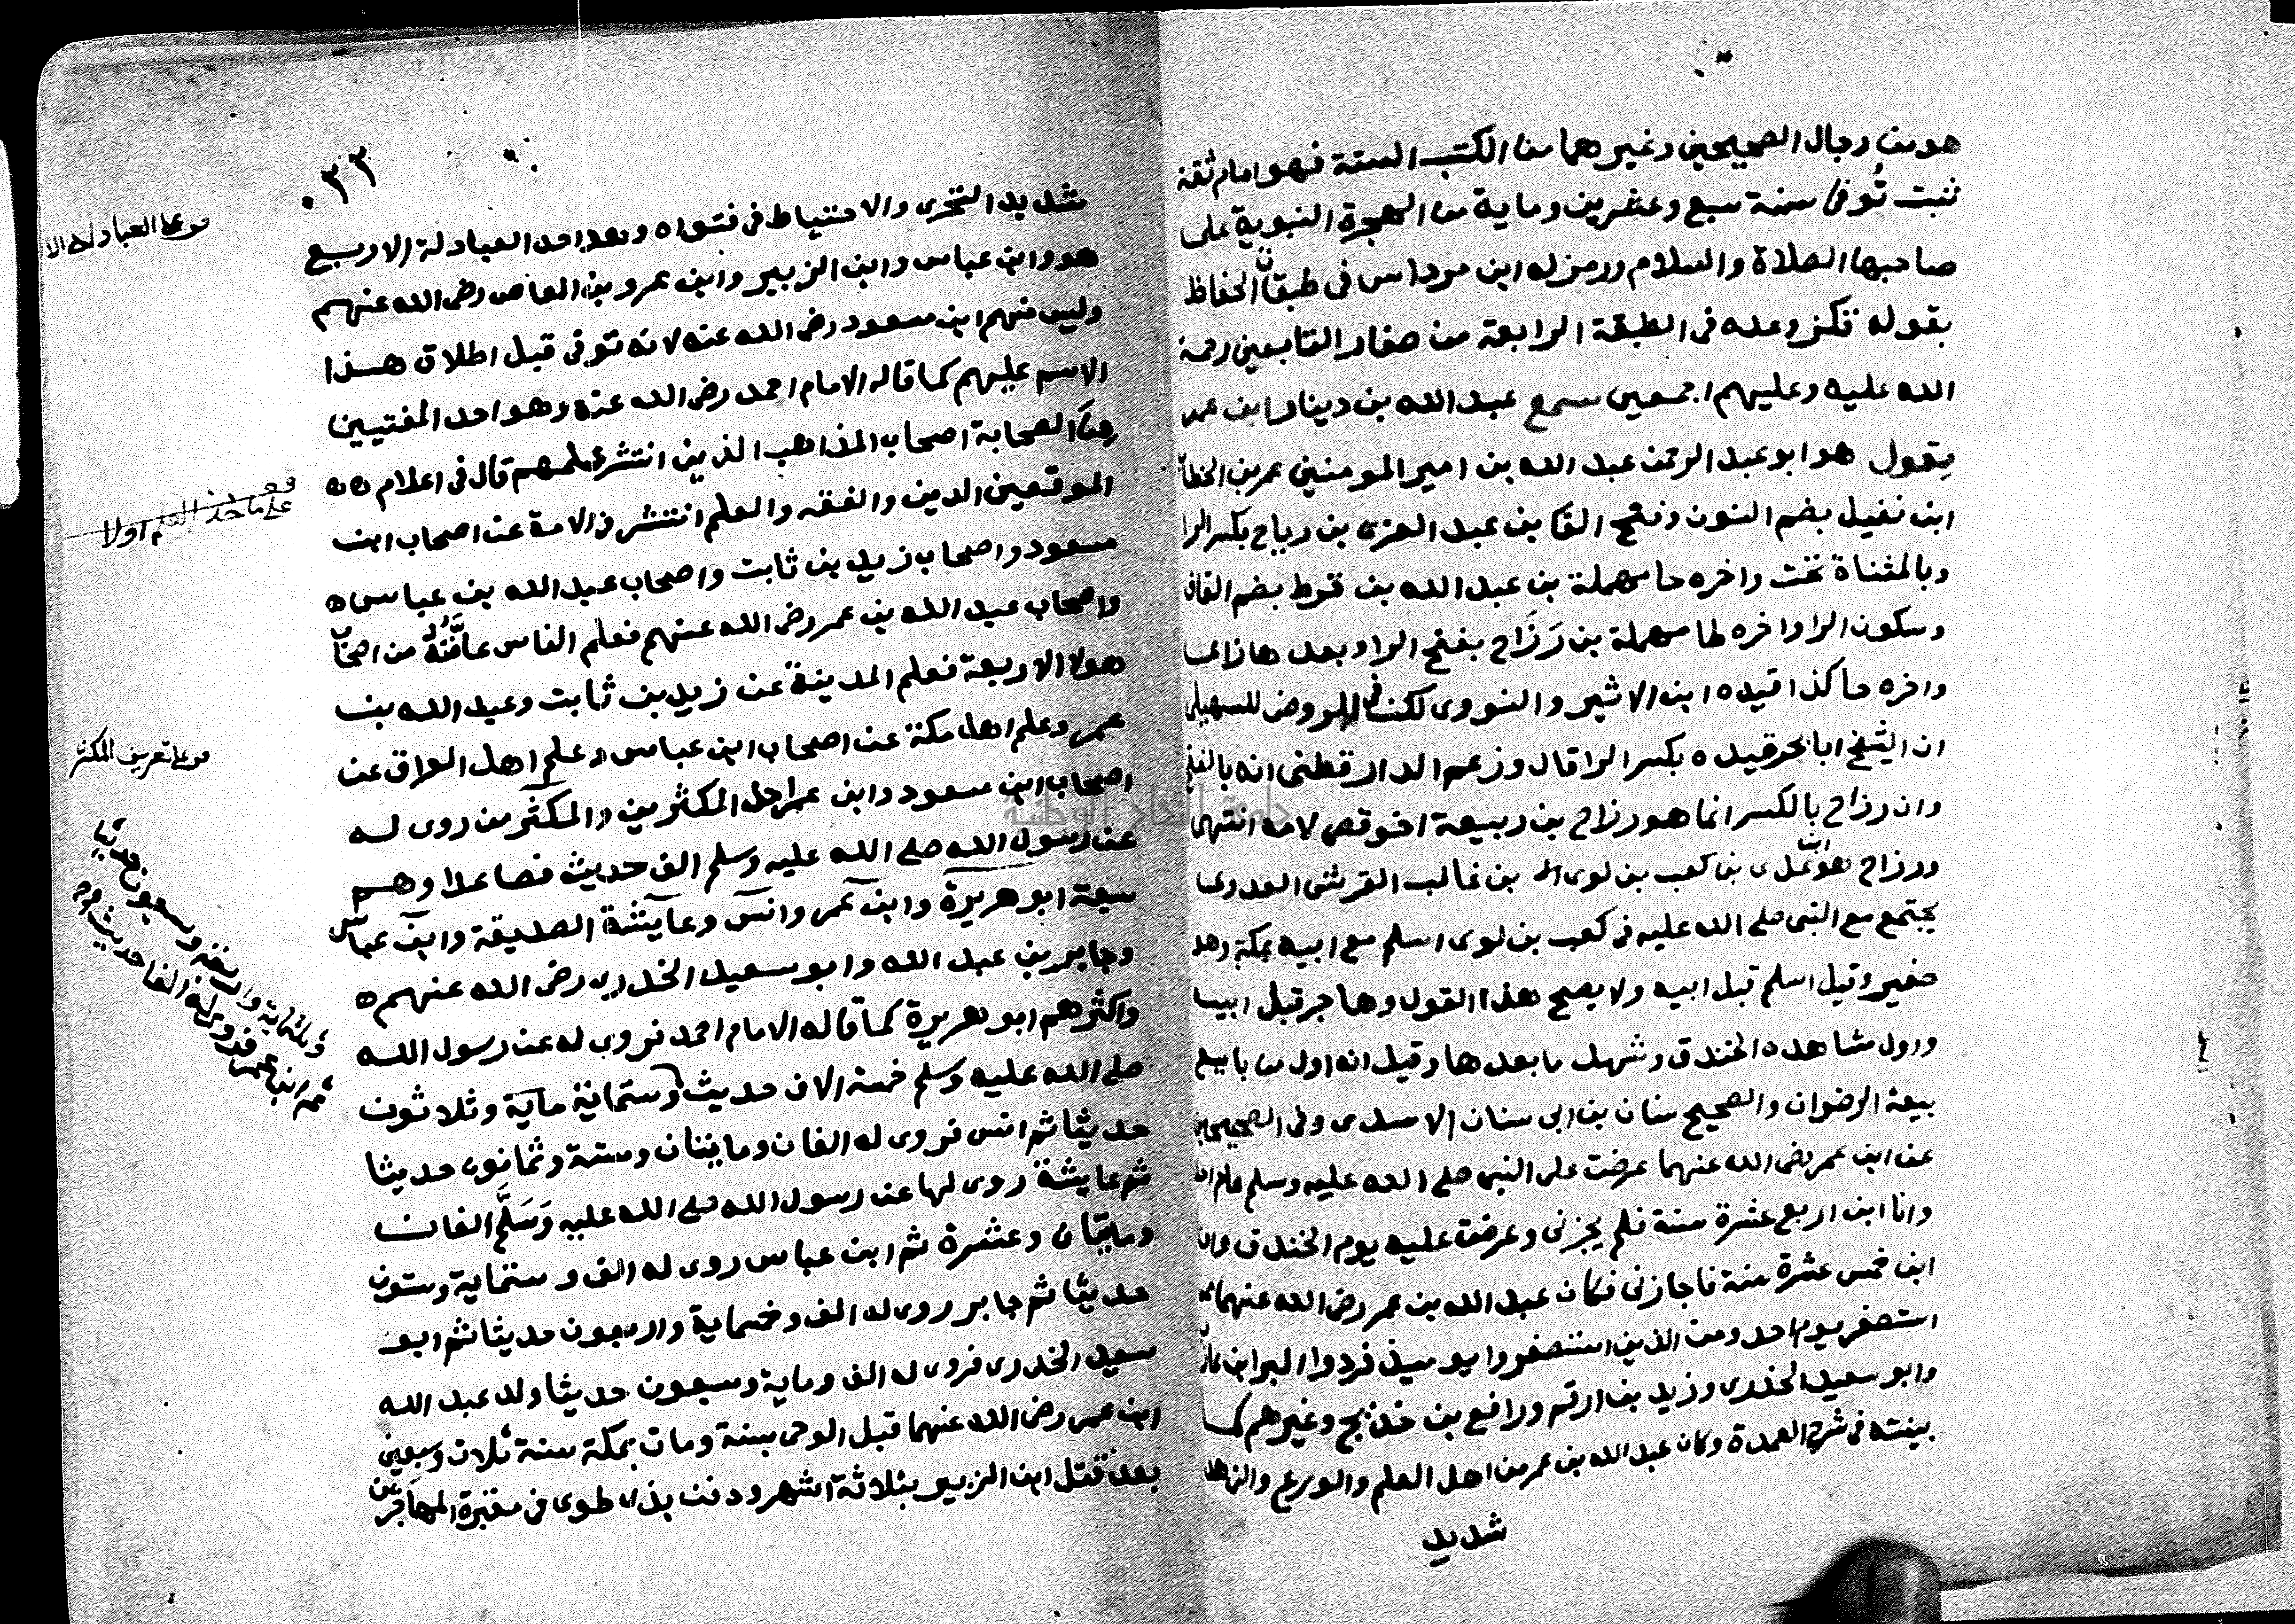 هو من رجال الصحيحين وغيرهما من الكتب الستة فهو امام ثقة
ثبت تُوفى سنة سبع وعشرين وماية من الهجرة النبوية على
صاحبها الصلاة والسلام ورمز له ابن مرداس في طبقات الحفاظ
بقوله وعده في الطبقة الرابعة من صغار التابعين رحمة
الله عليه وعليهم اجمعين سمع عبد الله بن دينار ابن عمر
يقول هو ابو عبد الرحمن عبد الله بن امير المومنين عمر بن الخطاب
ابن نفيل بضم النون وفتح الفا بن عبد العزى بن رياح بكسر الرا
وبالمثناة تحت واخره حا مهملة بن عبد الله بن قرط بضم القاف
وسكون الرا واخره طا مهملة بن رَزَاح بفتح الرا وبعدها زاي
واخره حا كذا قيده ابن الاثير والنووى لكن في الروض للسهيلي
ان الشيخ ابا بحر قيده بكسر الرا قال وزعم الدارقطنى انه بالفتح
وان رزاح بالكسر انما هو رزاح بن ربيعة اخو قصى لامه انتهى
ورزاح هو ابن عدى بن كعب بن لوى بن غالب القرشى العدوى
يجتمع مع النبى صلى الله عليه في كعب بن لوى اسلم مع ابيه بمكة وهو
صغير وقيل اسلم قبل ابيه ولا يصح هذا القول وهاجر قبل ابيه
واول مشاهده الخندق وشهد ما بعدها وقيل انه اول من بايع
بيعة الرضوان والصحيح سنان بن ابى سنان الاسدى وفى الصحيحين
عن ابن عمر رضى الله عنهما عرضت على النبى صلى الله عليه وسلم عام
وانا ابن اربع عشرة سنة فلم يجزنى وعرضت عليه يوم الخندق وانا
ابن خمس عشرة سنة فاجازنى فكان عبد الله بن عمر رضى الله عنهما
استصغر يوم احد ومن الذين استصغروا يوميذ فردوا البرا بن عازب
وابو سعيد الخدرى وزيد بن ارقم ورافع بن خديج وغيرهم كما
بينته في شرح العمدة وكان عبد الله بن عمر من اهل العلم والورع والزهد
شديد
٠٣٣
شديد التحرى والاحتياط فى فتواه وبعد احد العبادلة الاربع
هو وابن عباس وابن الزبير وابن عمرو بن العاص رضى الله عنهم
وليس منهم ابن مسعود رضى الله عنه لانه توفى قبل اطلاق هذا
الاسم عليهم كما قاله الامام احمد رضى الله عنه وهو احد المفتيين
من الصحابة اصحاب المذاهب الذين انتشر علمهم قال فى اعلام
الموقعين الدين والفقه والعلم انتشر فى الامة عن اصحاب ابن
مسعود واصحاب زيد بن ثابت واصحاب عبد الله بن عباس
واصحاب عبد الله بن عمر رضى الله عنهم فعلم الناس عامَّتُهُ من اصحاب
هولا الاربعة فعلم المدينة عن زيد بن ثابت وعبد الله بن
عمر وعلم اهل مكة عن اصحاب ابن عباس وعلم اهل العراق عن
اصحاب ابن مسعود وابن عمر احد المكثرين والمكثر من روى له
عن رسول الله صلى الله عليه وسلم الف حديث فصاعدا وهم
سبعة ابو هريرة وابن عمر وانس وعايشة الصديقة وابن عباس
وجابر بن عبد الله وابو سعيد الخدرى رضى الله عنهم
واكثرهم ابو هريرة كما قاله الامام احمد فروى له عن رسول الله
صلى الله عليه وسلم خمسة الاف حديث وستماية ماية وثلاثون
حديثا ثم انس فروى له الفان ومايتان وستة وثمانون حديثا
ثم عايشة روى لها عن رسول الله صلى الله عليه وَسَلَّم الفان
ومايتان وعشرة ثم ابن عباس روى له الف وستماية وستون
حديثا ثم جابر روى له الف وخمسماية واربعون حديثا ثم ابو
سعيد الخدرى فروى له الف وماية وسبعون حديثا ولد عبد الله
ابن عمر رضى الله عنهما قبل الوحى بسنة ومات بمكة سنة ثلاث وسبعين
بعد قتل ابن الزبير بثلاثة اشهر ودفن بذى طوى فى مقبرة المهاجرين
العبادلة الا
العلم اولا
تعريف المكثر
ثم ابن عمر فروى له الفا حديث
جامعة النجاح الوطنية